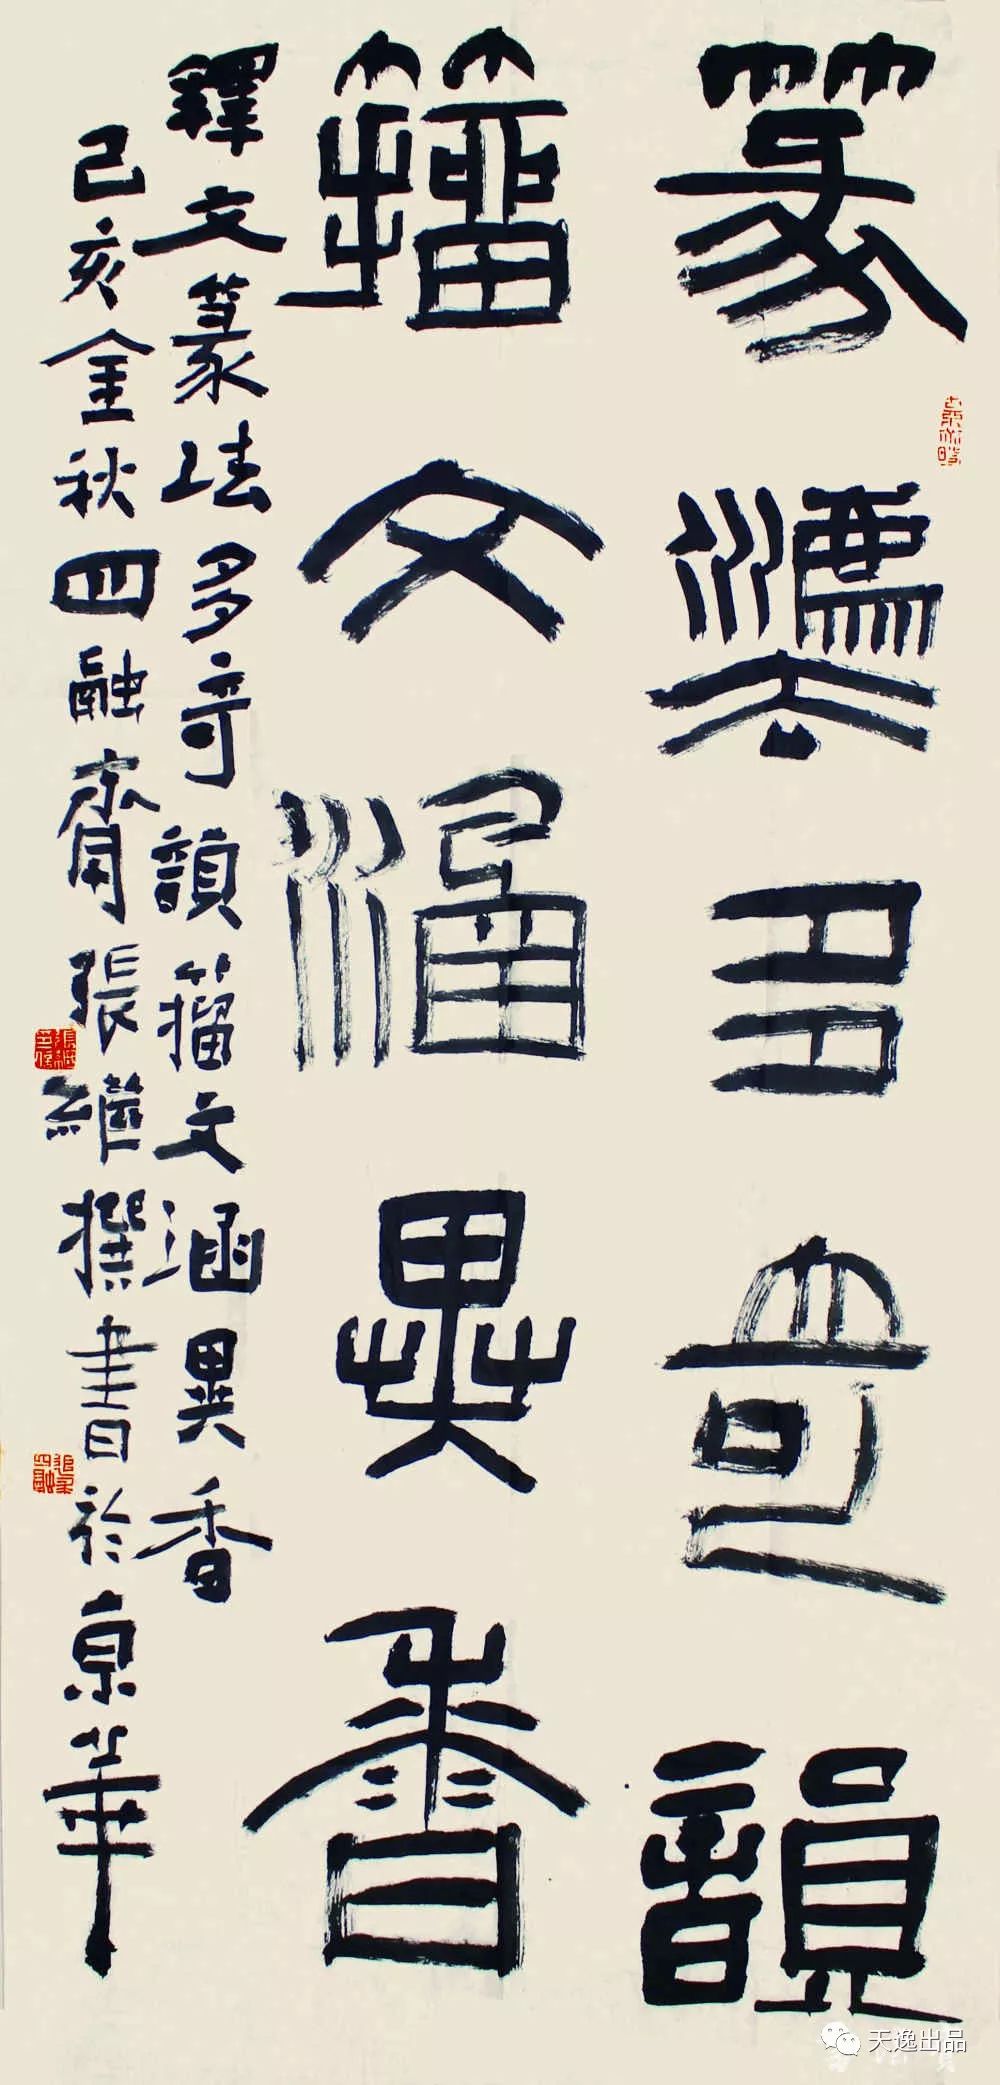 篆灋多奇韻
籀文涵異香
釋文篆法多奇韻籀文涵異香
己亥金秋四融齋張繼撰書於京華
天逸出品